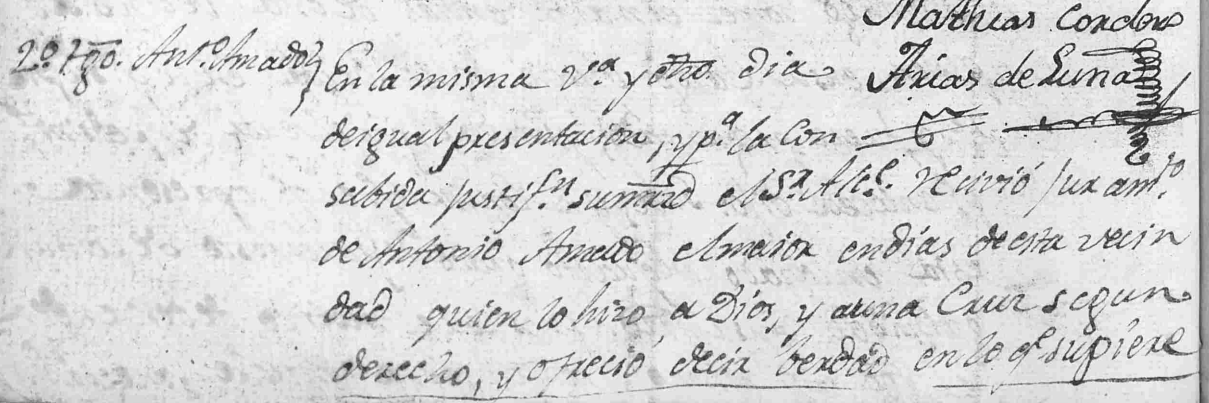 Mathias Cordero
2º. tgo. Antº. Amado} En la misma vª. y otro dia Arias de Luna
de igual presentacion, y pª. la Con
sabida justifn. sumrad el Sr. Alce. recivió juramtº.
de Antonio Amado el maior en dias de esta vecin
dad quien lo hizo a Dios, y a una Cruz segun
derecho, y ofreció decir berdad en lo qe. supiere